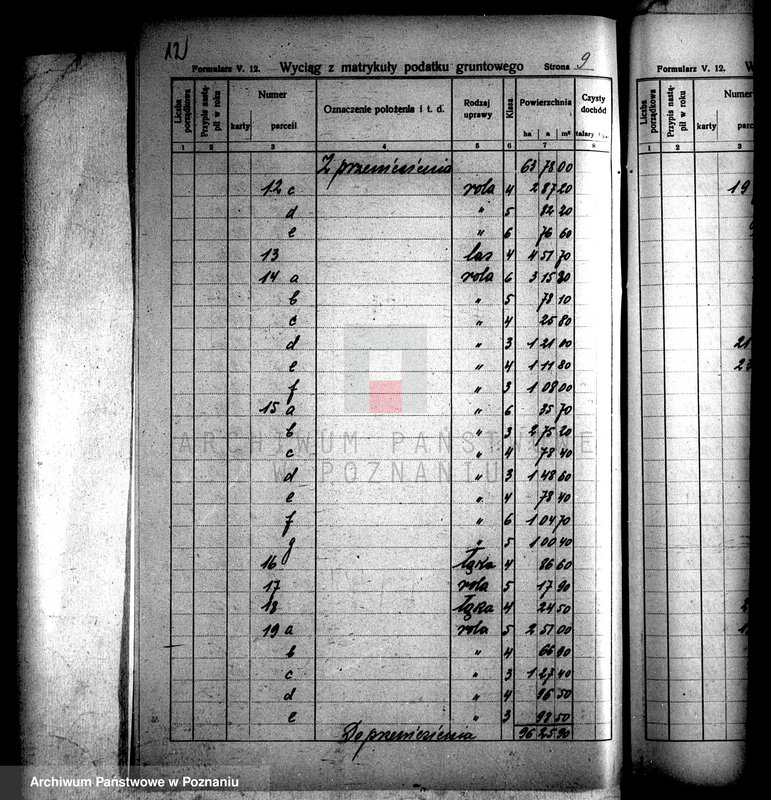 12
Formularz V. 12. Wyciąg z matrykuły podatku gruntowego Strona 9
Liczba porządkowa Przypis nastąpił w roku Numer karty parceli Oznaczenie położenia i t. d. Rodzaj uprawy Klasa Powierzchnia ha a m² Czysty dochód talary
1 2 3 4 5 6 7 8
Z przeniesienia 63 78 00
12 c rola 4 2 87 20
d " 5 82 20
e " 6 76 60
13 las 4 4 51 70
14 a rola 6 3 15 30
b " 5 78 10
c " 4 25 80
d " 3 1 21 00
e " 4 1 11 80
f " 3 1 08 00
15 a " 6 35 70
b " 3 2 75 20
c " 4 78 40
d " 3 1 48 60
e " 4 78 40
f " 6 1 04 70
g " 5 1 00 40
16 łąka 4 86 60
17 rola 5 17 90
18 łąka 4 24 50
19 a rola 5 2 51 00
b " 4 66 90
c " 3 1 27 40
d " 4 96 50
e " 3 98 50
Do przeniesienia 96 25 90
Formularz V. 12.
Liczba porządkowa Przypis nastąpił w roku Numer karty
1 2 3
19
21
ARCHIWUM PAŃSTWOWE
W POZNANIU
Archiwum Państwowe w Poznaniu